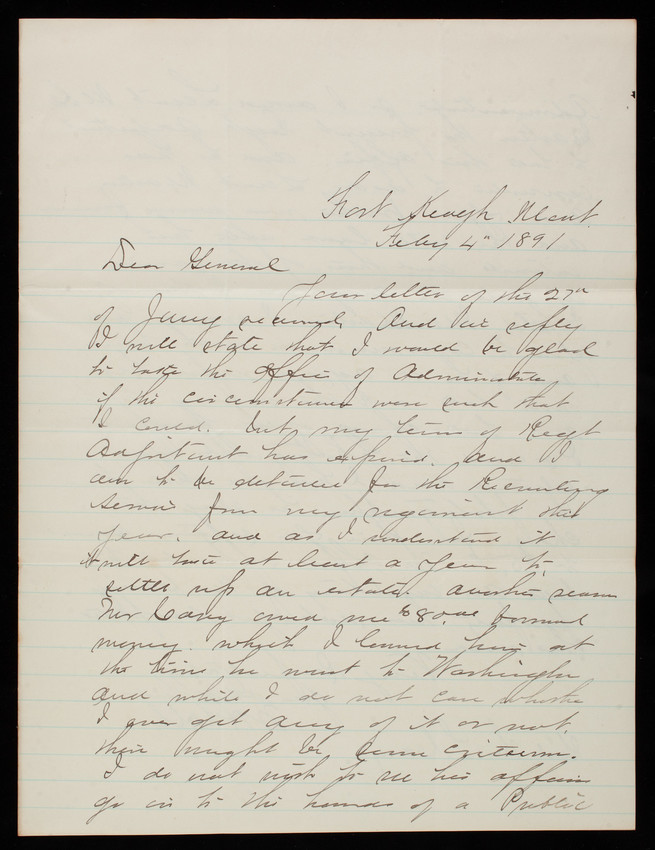 Fort Keogh Mont.
Feby 4" 1891
Dear General
Your letter of the 27th
of Jany received, And in reply
I will state that I would be glad
to take the office of Administrator
if the circumstances were such that
I could. but my term of Regt
Adjutant has expired. and I
am to be detailed for the Recruiting
Service from my regiment this
year. and as I understand it
it will take at least a year to
settle up an estate. another reason
Mr Casey owed me $80.00 borrowed
money. which I loaned him at
the time he went to Washington
and while I do not care whether
I ever get any of it or not,
there might be some criticism.
I do not wish to see his affairs
go in to the hands of a Public